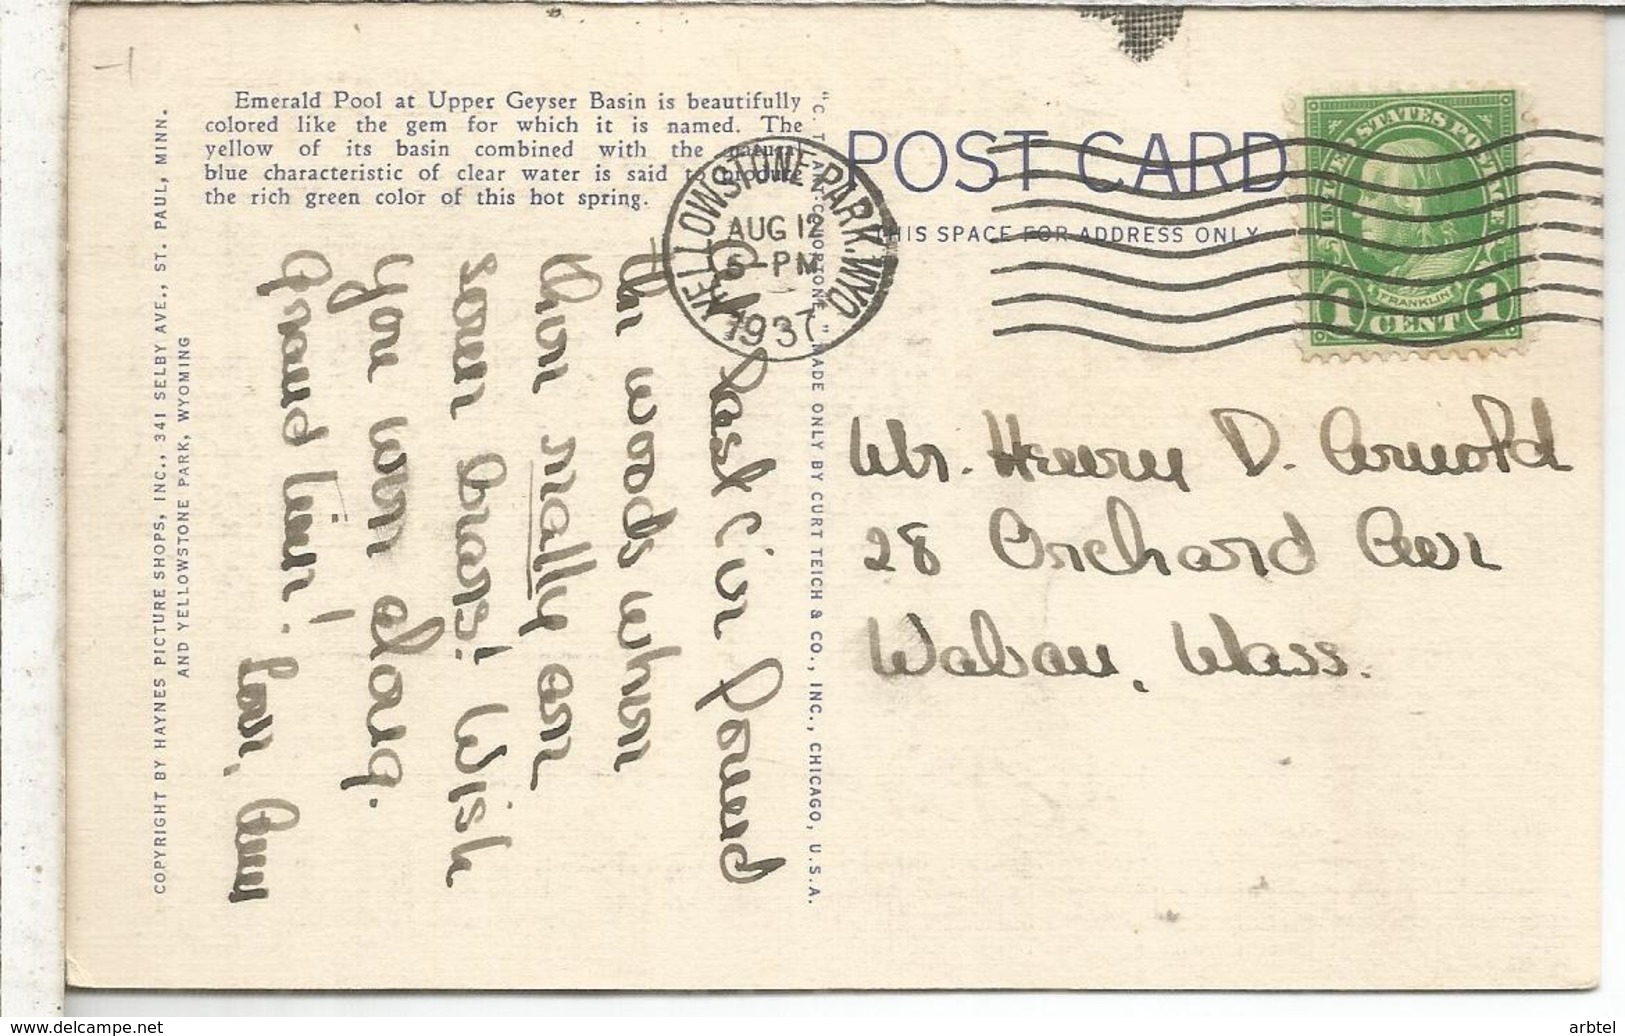 Emerald Pool at Upper Geyser Basin is beautifully
colored like the gem for which it is named. The
yellow of its basin combined with the natural
blue characteristic of clear water is said to produce
the rich green color of this hot spring.
COPYRIGHT BY HAYNES PICTURE SHOPS, INC., 341 SELBY AVE., ST. PAUL, MINN.
AND YELLOWSTONE PARK, WYOMING
"C. T. ART-COLORTONE" MADE ONLY BY CURT TEICH & CO., INC., CHICAGO, U.S.A.
POST CARD
THIS SPACE FOR ADDRESS ONLY
YELLOWSTONE PARK, WYO.
AUG 12
5-PM
1937
UNITED STATES POSTAGE
FRANKLIN
1 CENT 1
At last I've found
the woods where
there really are
some bears! Wish
you were along.
Grand time!
Love, Amy
Mr. Henry D. Arnold
28 Orchard Ave
Waban, Mass.
arbtel
www.delcampe.net